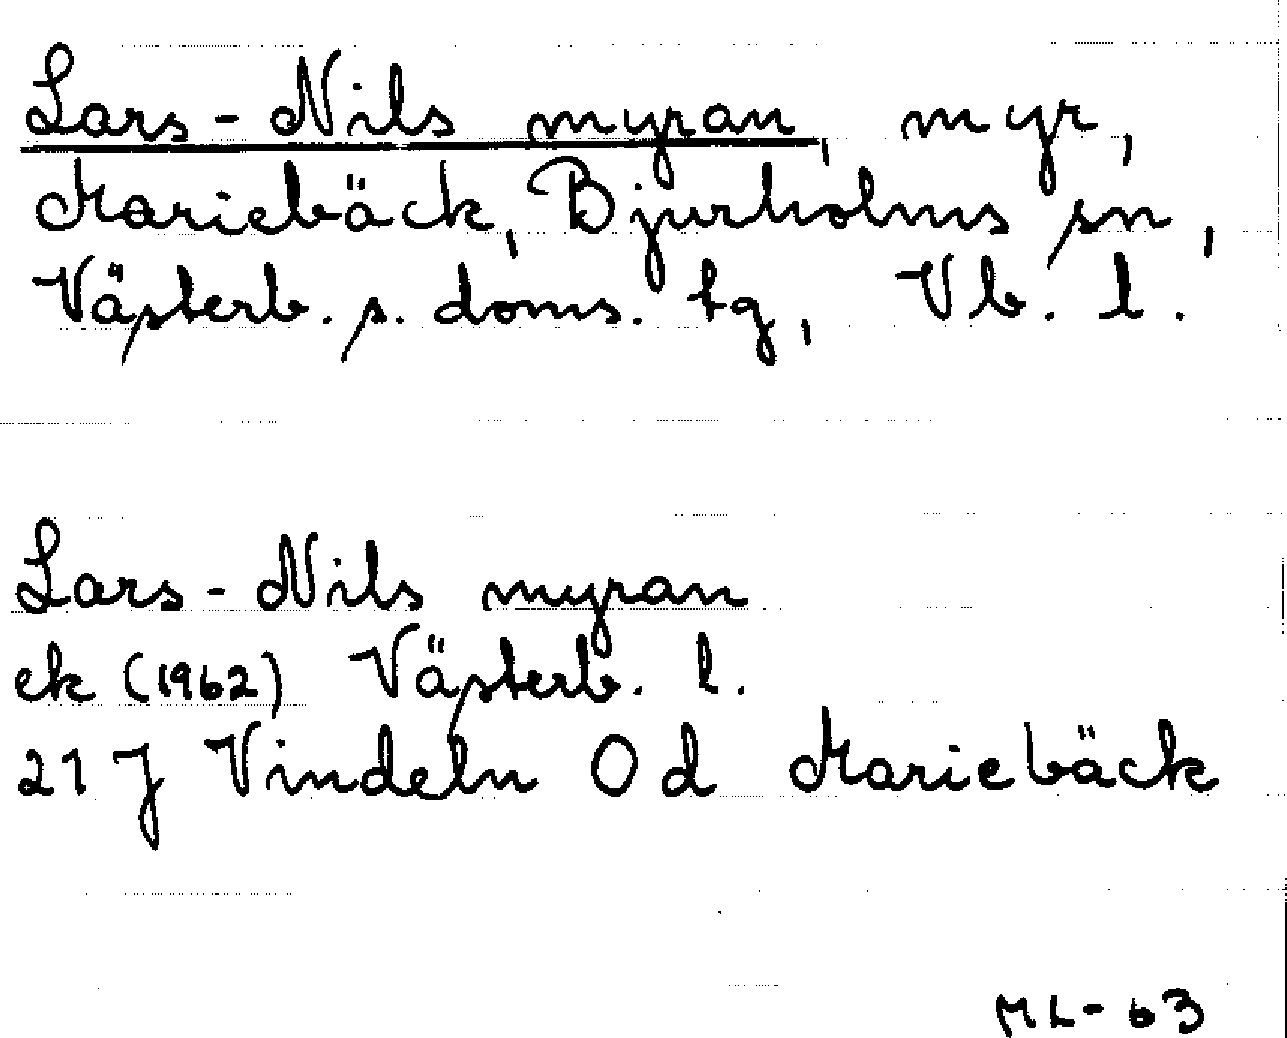 Lars-Nils myran, myr,
Mariebäck, Bjurholms sn,
Västerb. s. doms. tg, Vb. l.
Lars-Nils myran
ek (1962) Västerb. l.
21 J Vindeln 0 d Mariebäck
ML-63